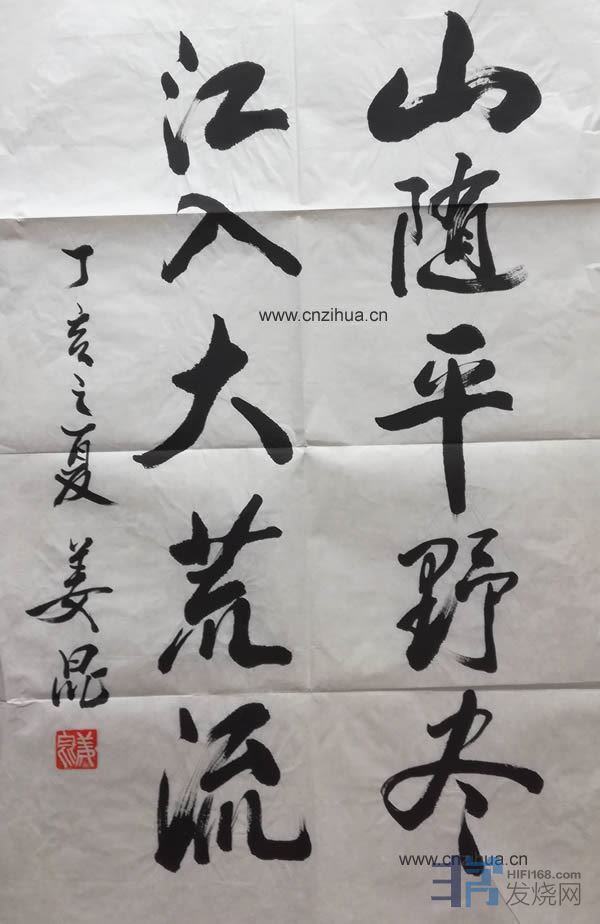 山随平野尽
江入大荒流
丁亥之夏 姜昆
www.cnzihua.cn
www.cnzihua.cn
HIFI168.com
发烧网